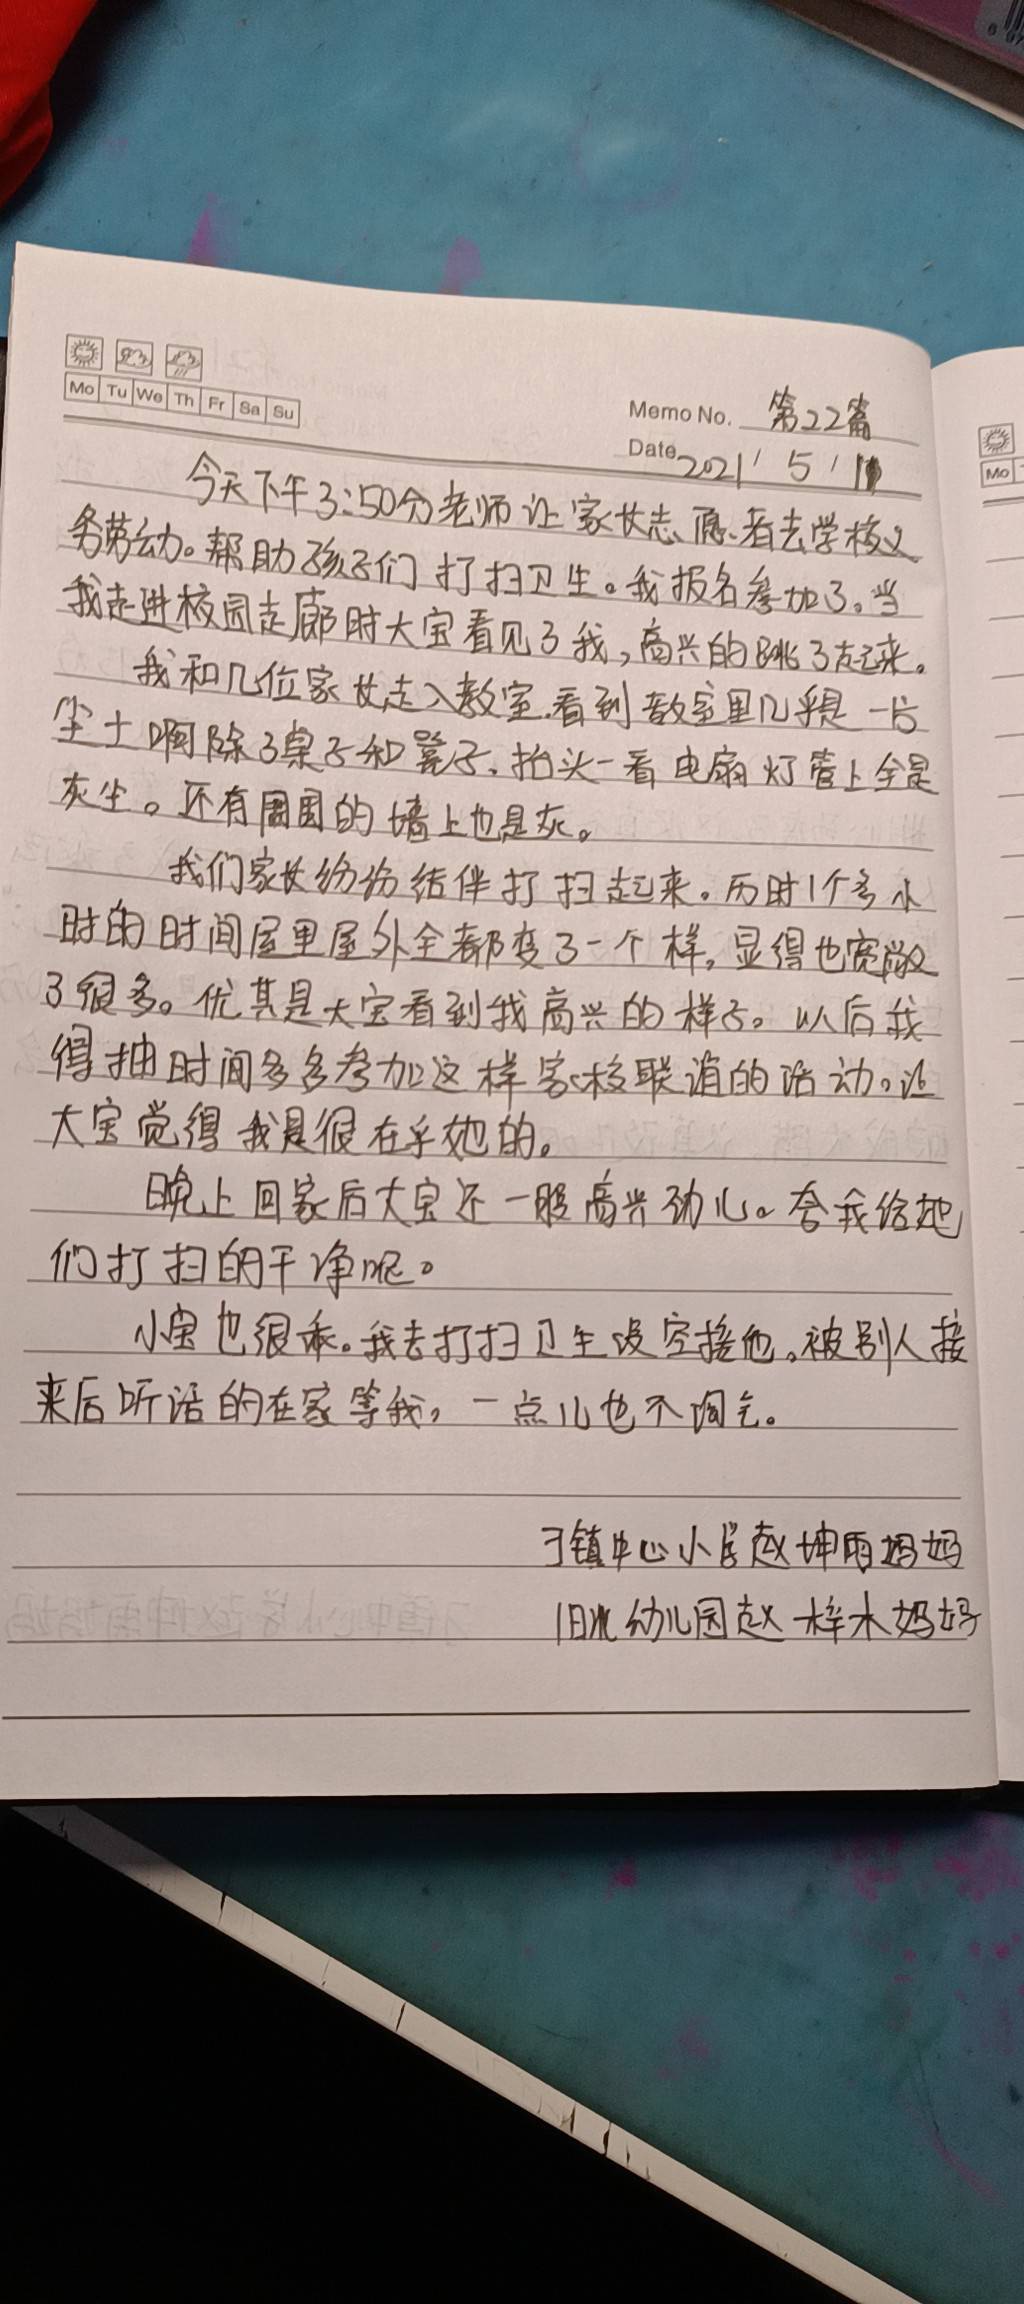 Mo Tu We Th Fr Sa Su
Memo No. 第22篇
Date 2021/5/11
今天下午3:50分老师让家长志愿者去学校义
务劳动。帮助孩子们打扫卫生。我报名参加了。当
我走进校园走廊时大宝看见了我,高兴的跳了起来。
我和几位家长走入教室.看到教室里几乎是一片
尘土啊除了桌子和凳子.抬头一看电扇灯管上全是
灰尘。还有周围的墙上也是灰。
我们家长纷纷结伴打扫起来。历时1个多小
时的时间屋里屋外全都变了一个样,显得也宽敞
了很多。优其是大宝看到我高兴的样子。以后我
得抽时间多多参加这样家校联谊的活动。让
大宝觉得我是很在乎她的。
晚上回家后大宝还一股高兴劲儿。夸我给她
们打扫的干净呢。
小宝也很乖。我去打扫卫生没空接他,被别人接
来后听话的在家等我,一点儿也不淘气。
刁镇中心小学赵坤雨妈妈
旧 幼儿园赵梓木妈妈
Mo